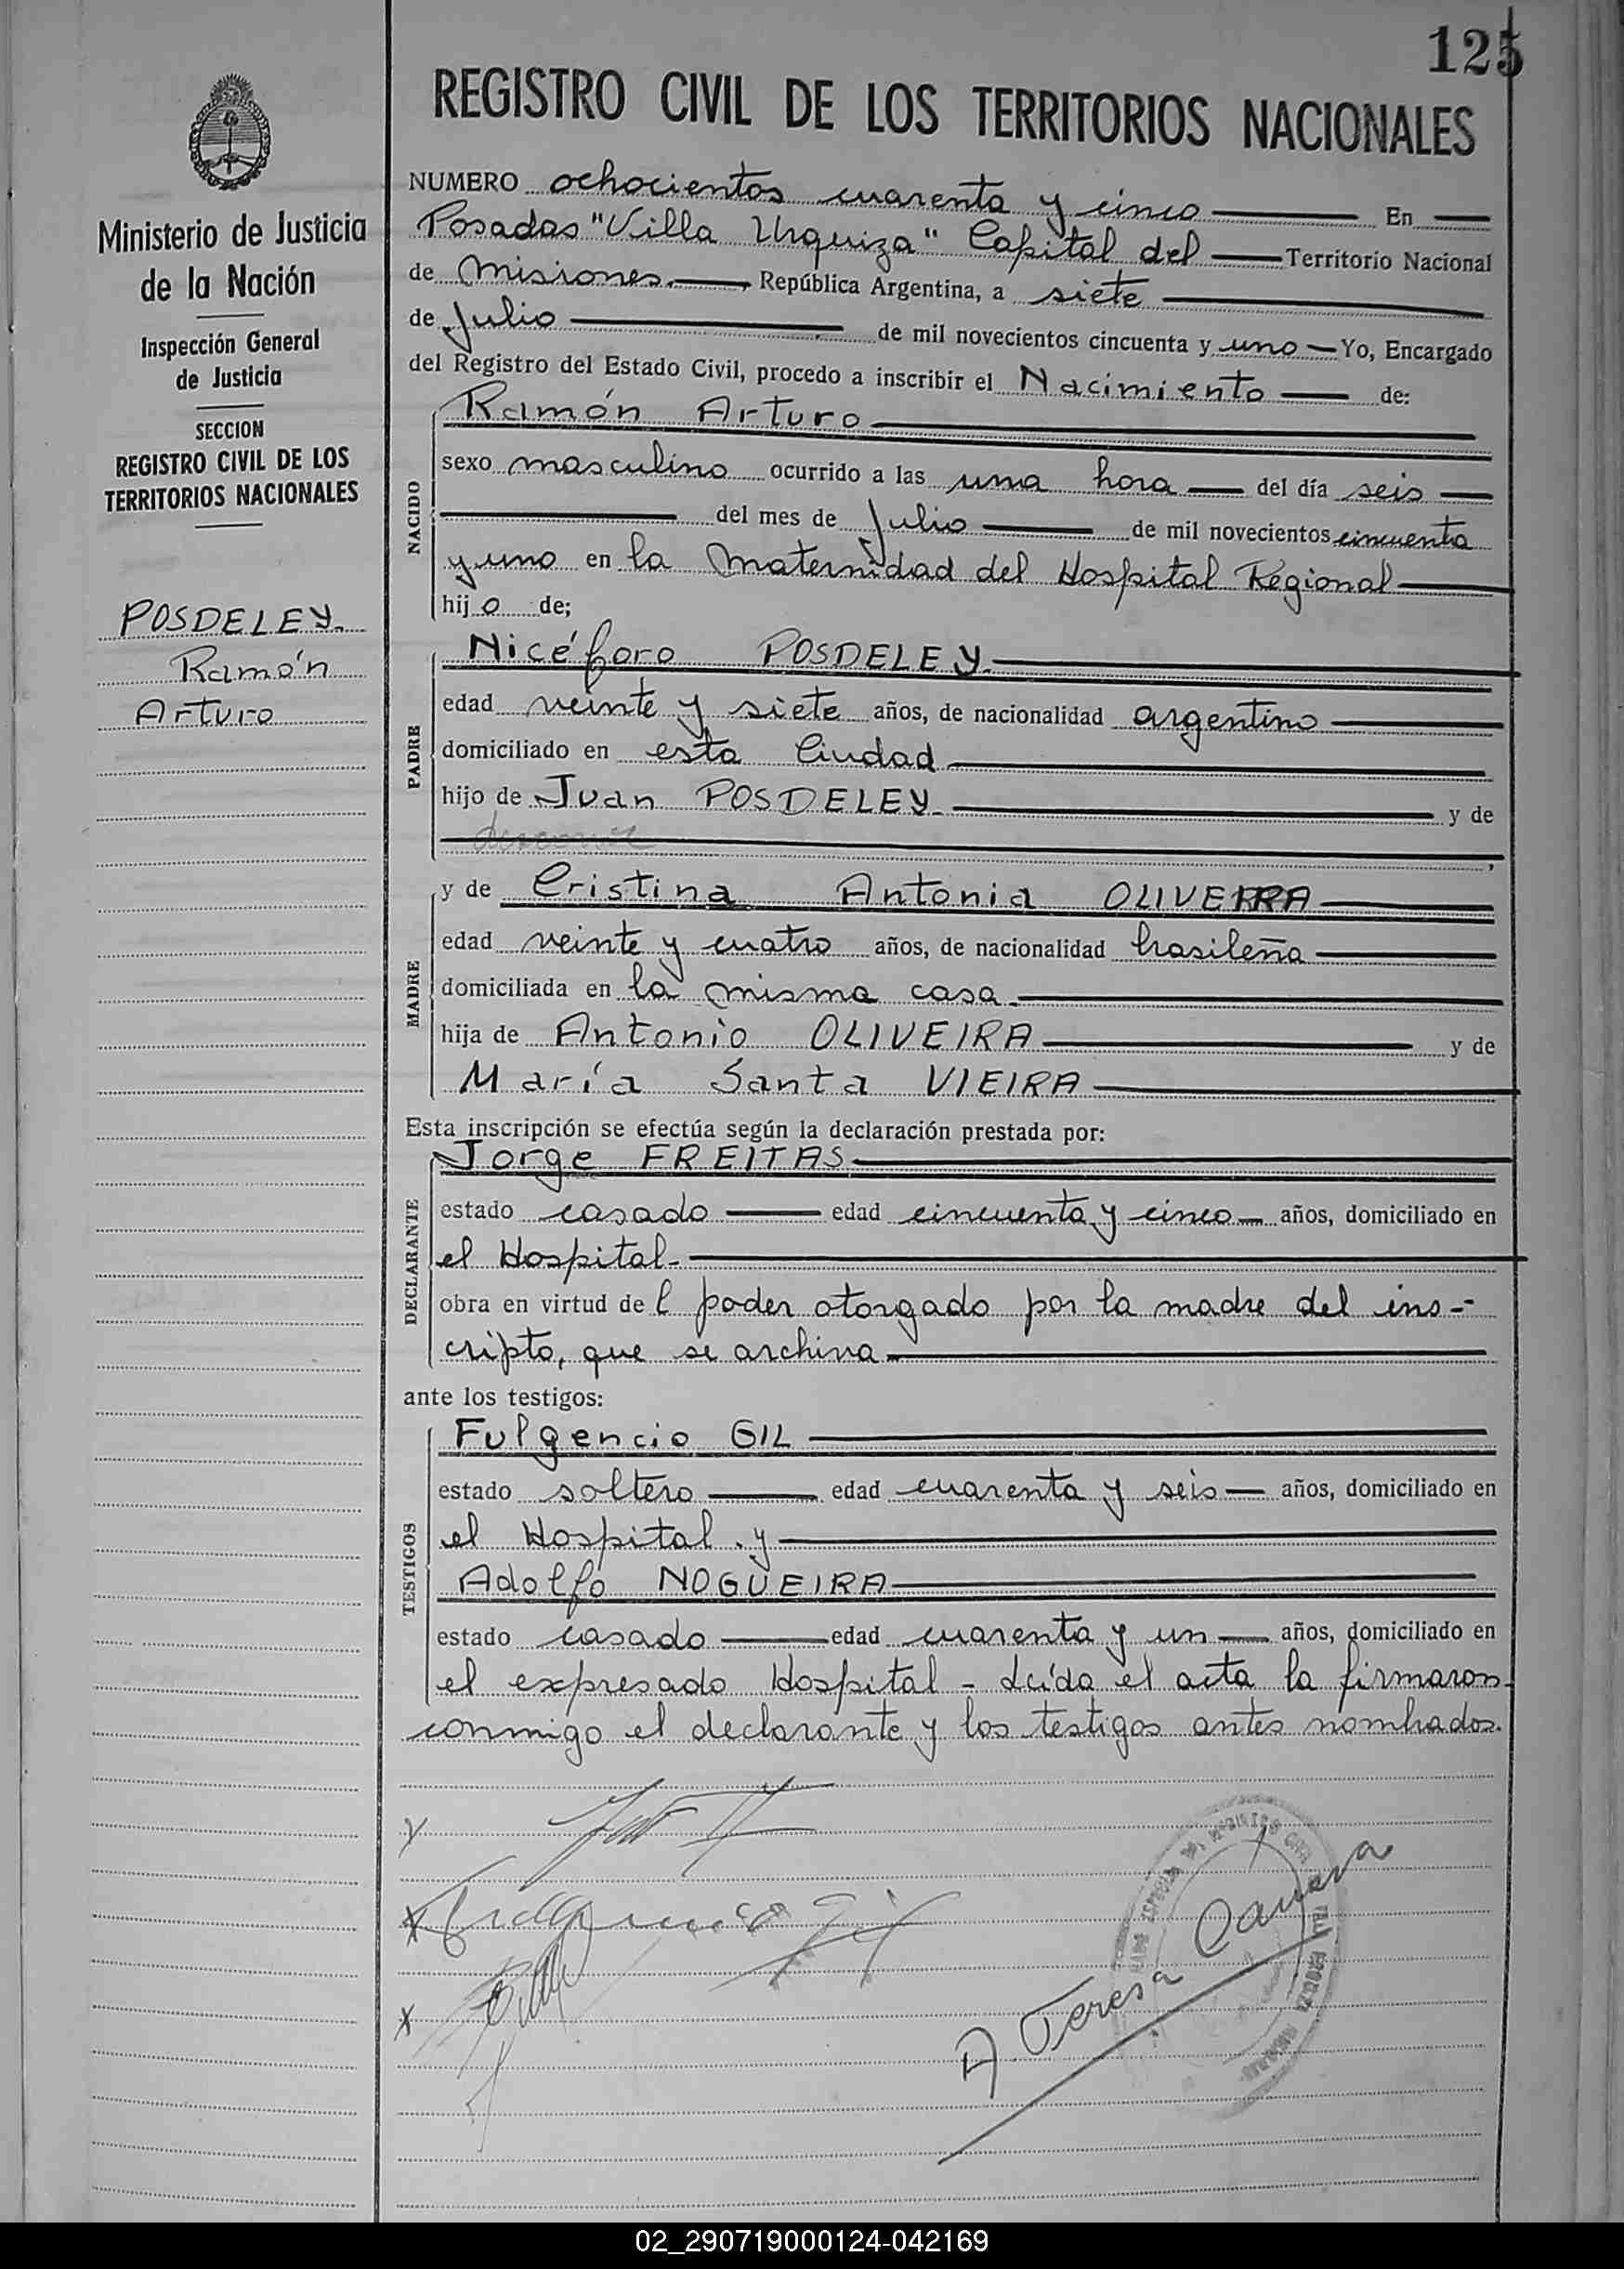 125
REGISTRO CIVIL DE LOS TERRITORIOS NACIONALES
Ministerio de Justicia
de la Nación
Inspección General
de Justicia
SECCION
REGISTRO CIVIL DE LOS
TERRITORIOS NACIONALES
POSDELEY.
Ramón
Arturo
NUMERO ochocientos cuarenta y cinco En
Posadas "Villa Urquiza" Capital del Territorio Nacional
de Misiones. , República Argentina, a siete
de Julio de mil novecientos cincuenta y uno Yo, Encargado
del Registro del Estado Civil, procedo a inscribir el Nacimiento de:
NACIDO
Ramón Arturo
sexo masculino ocurrido a las una hora del día seis
del mes de Julio de mil novecientos cincuenta
y uno en la Maternidad del Hospital Regional
hijo de;
PADRE
Nicéforo POSDELEY.
edad veinte y siete años, de nacionalidad argentino
domiciliado en esta Ciudad
hijo de Juan POSDELEY. y de
,
MADRE
y de Cristina Antonia OLIVEIRA
edad veinte y cuatro años, de nacionalidad brasileña
domiciliada en la misma casa.
hija de Antonio OLIVEIRA y de
María Santa VIEIRA
Esta inscripción se efectúa según la declaración prestada por:
DECLARANTE
Jorge FREITAS
estado casado edad cincuenta y cinco años, domiciliado en
el Hospital.
obra en virtud del poder otorgado por la madre del ins-
cripto, que se archiva
ante los testigos:
TESTIGOS
Fulgencio GIL
estado soltero edad cuarenta y seis años, domiciliado en
el Hospital. y
Adolfo NOGUEIRA
estado casado edad cuarenta y un años, domiciliado en
el expresado Hospital - Leída el acta la firmaron
conmigo el declarante y los testigos antes nombrados.
Fulgencio Gil
A Teresa
02_290719000124-042169